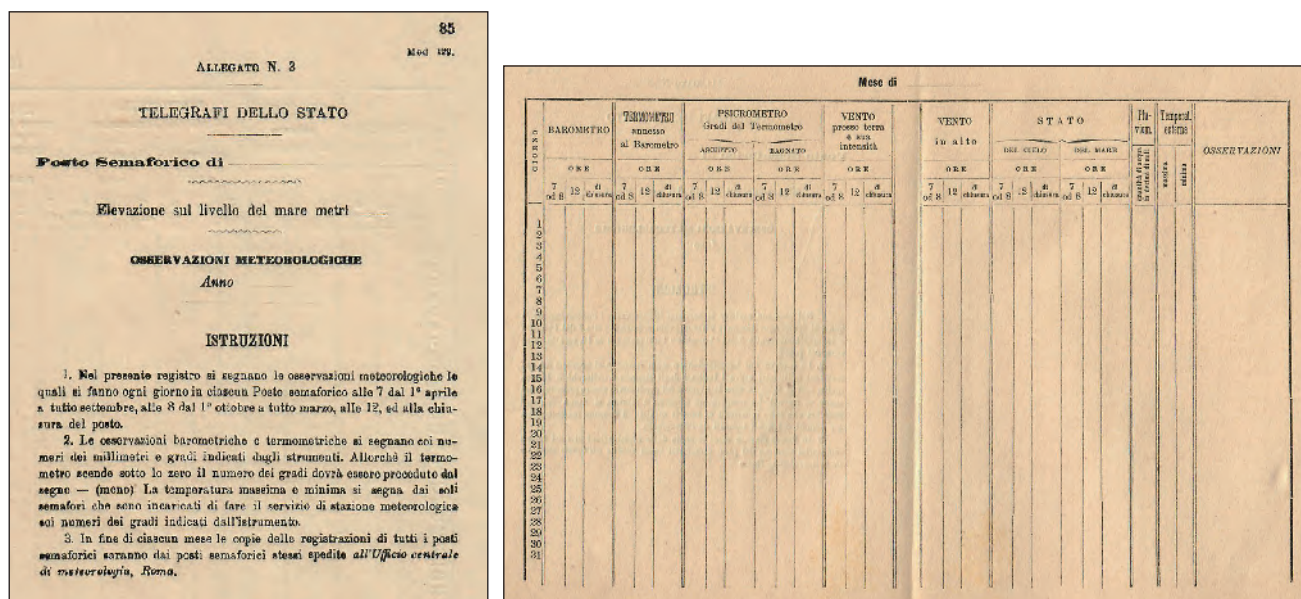 85
Mod 129.
ALLEGATO N. 3
TELEGRAFI DELLO STATO
Posto Semaforico di
Elevazione sul livello del mare metri
OSSERVAZIONI METEOROLOGICHE
Anno
ISTRUZIONI
1. Nel presente registro si segnano le osservazioni meteorologiche le
quali si fanno ogni giorno in ciascun Posto semaforico alle 7 dal 1º aprile
a tutto settembre, alle 8 dal 1º ottobre a tutto marzo, alle 12, ed alla chiu-
sura del posto.
2. Le osservazioni barometriche e termometriche si segnano coi nu-
meri dei millimetri e gradi indicati dagli strumenti. Allorchè il termo-
metro scende sotto lo zero il numero dei gradi dovrà essere preceduto dal
segno — (meno) La temperatura massima e minima si segna dai soli
semafori che sono incaricati di fare il servizio di stazione meteorologica
coi numeri dei gradi indicati dall'istrumento.
3. In fine di ciascun mese le copie delle registrazioni di tutti i posti
semaforici saranno dai posti semaforici stessi spedite all'Ufficio centrale
di meteorologia, Roma.
Mese di
GIORNO
BAROMETRO
ORE
7 od 8 12 di chiusura
TERMOMETRO
annesso
al Barometro
ORE
7 od 8 12 di chiusura
PSICROMETRO
Gradi del Termometro
ASCIUTTO BAGNATO
ORE ORE
7 od 8 12 di chiusura 7 od 8 12 di chiusura
VENTO
presso terra
e sua
intensità
ORE
7 od 8 12 di chiusura
VENTO
in alto
ORE
7 od 8 12 di chiusura
STATO
DEL CIELO DEL MARE
ORE ORE
7 od 8 12 di chiusura 7 od 8 12 di chiusura
Plu-
viom.
Temperat.
esterne
massima
minima
OSSERVAZIONI
1
2
3
4
5
6
7
8
9
10
11
12
13
14
15
16
17
18
19
20
21
22
23
24
25
26
27
28
29
30
31